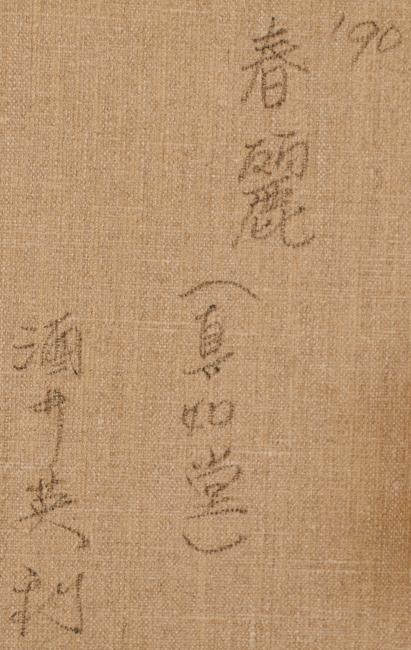 '90
春麗
(真如堂)
酒井英利